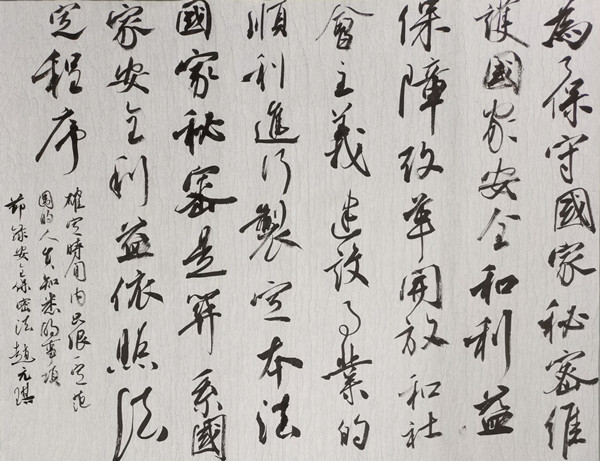 為了保守國家秘密維
護國家安全和利益
保障改革開放和社
會主義建設事業的
順利進行製定本法
國家秘密是關系國
家安全利益依照法
定程序
確定時間内只限一定范
圍的人員知悉的事項
節錄安全保密法 趙元琪